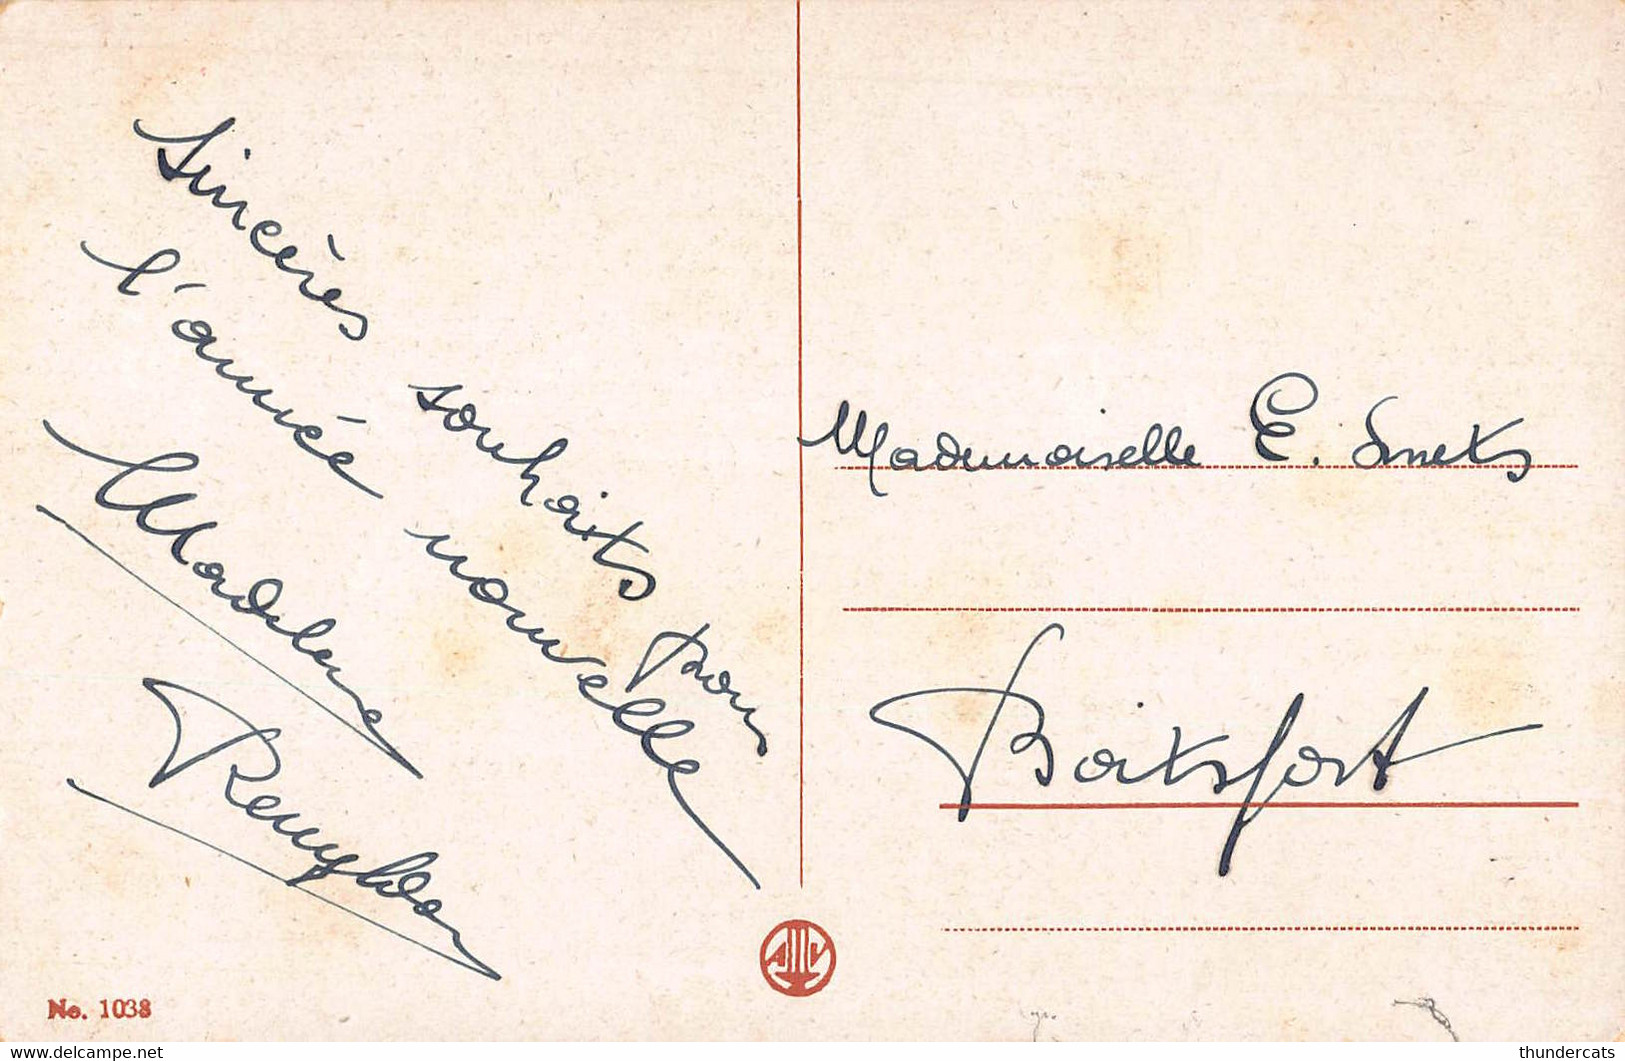 Sincères souhaits pour
l'année nouvelle
Madeleine
Mademoiselle E. Smets
Boitsfort
AV
No. 1038
https://www.delcampe.net
thundercats